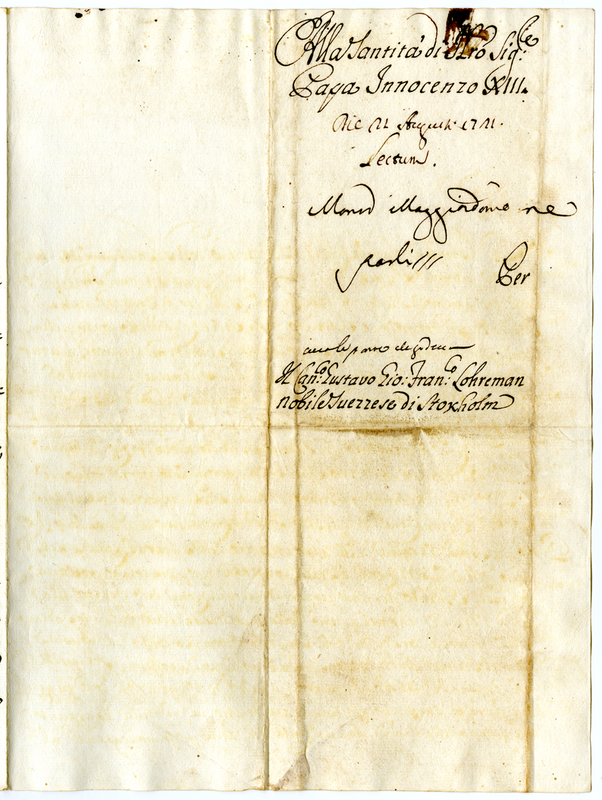 Alla Santità di Nr̃o Sig:re
Papa Innocenzo XIII.
Die 21 Augusti 1721.
Lectum.
Monsr Maggiordomo ne
parli
Per
Il Can:co Gustavo Gio: Fran:co Lohreman
nobile Suezzese di Stoxholm